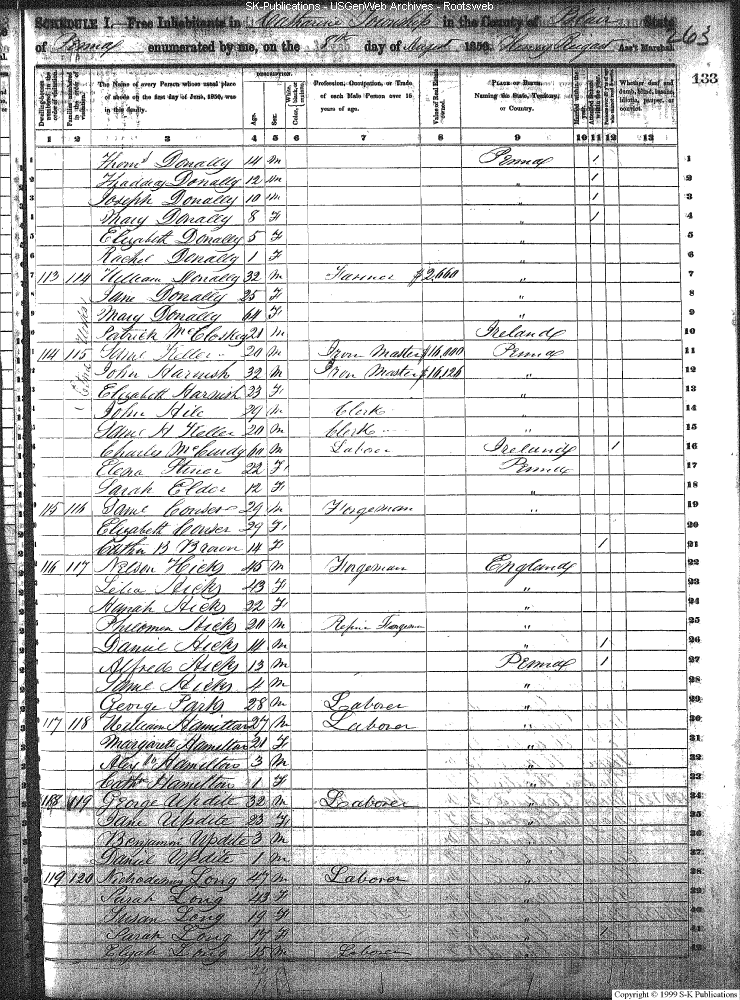 SK-Publications - USGenWeb Archives - Rootsweb
SCHEDULE I.—Free Inhabitants in Catharine Township in the County of Blair State
of Penna enumerated by me, on the 8th day of August 1850. Ass't Marshal. 263
133
DESCRIPTION.
Dwelling-houses numbered in the order of visitation.
Families numbered in the order of visitation.
The Name of every Person whose usual place of abode on the first day of June, 1850, was in this family.
Age.
Sex.
White, black, or mulatto.
Profession, Occupation, or Trade of each Male Person over 15 years of age.
Value of Real Estate owned.
PLACE OF BIRTH. Naming the State, Territory, or Country.
Married within the year.
Whether deaf and dumb, blind, insane, idiotic, pauper, or convict.
1 2 3 4 5 6 7 8 9 10 11 12 13
1 Thoms Donally 14 m Penna / 1
2 Thaddeas Donally 12 m " / 2
3 Joseph Donally 10 m " / 3
4 Mary Donally 8 F " / 4
5 Elizabeth Donally 5 F " 5
6 Rachel Donally 1 F " 6
7 113 114 William Donally 32 m Farmer $2,660 " 7
8 Jane Donally 25 F " 8
9 Mary Donally 64 F " 9
Patrick McCloskey 21 m Ireland 10
114 115 Saml Keller 20 m Iron Master $16,000 Penna 11
John Harnish 32 m Iron Master $16,126 " 12
Elizabeth Harnish 23 F " 13
John Hile 29 m Clerk " 14
Saml H Keller 20 m Clerk " 15
Charles McCurdy 60 m Laborer Ireland / 16
Elena Stiner 22 F Penna 17
Sarah Elder 12 F " 18
115 116 Saml Conser 29 m Forgeman " 19
Elizabeth Conser 29 F 20
Cathn B Brown 14 F / 21
116 117 Nelson Hicks 45 m Forgeman England 22
Lelia Hicks 43 F " 23
Hanah Hicks 22 F " 24
Philomen Hicks 20 m Forgeman " 25
Daniel Hicks 14 m " / 26
Alfred Hicks 13 m Penna / 27
Saml Hicks 4 m " 28
George Parks 28 m Laborer " 29
117 118 William Hamilton 27 m Laborer " 30
Margarett Hamilton 21 F " 31
Alexr Hamilton 3 m " 32
Cathn Hamilton 1 F " 33
118 119 George Updite 32 m Laborer " 34
Jane Updite 23 F " 35
Benjamin Updite 3 m " 36
Daniel Updite 1 m " 37
119 120 Nichodemus Long 47 m Laborer " 38
Sarah Long 43 F " 39
Susan Long 19 F " 40
Sarah Long 17 F " 41
Elijah Long 15 m Laborer " 42
Copyright © 1999 S-K Publications